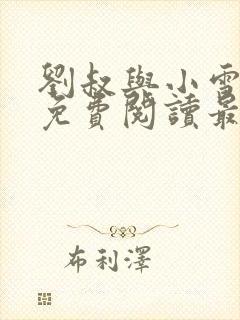 劉叔與小雪
免費閱讀最
布利澤